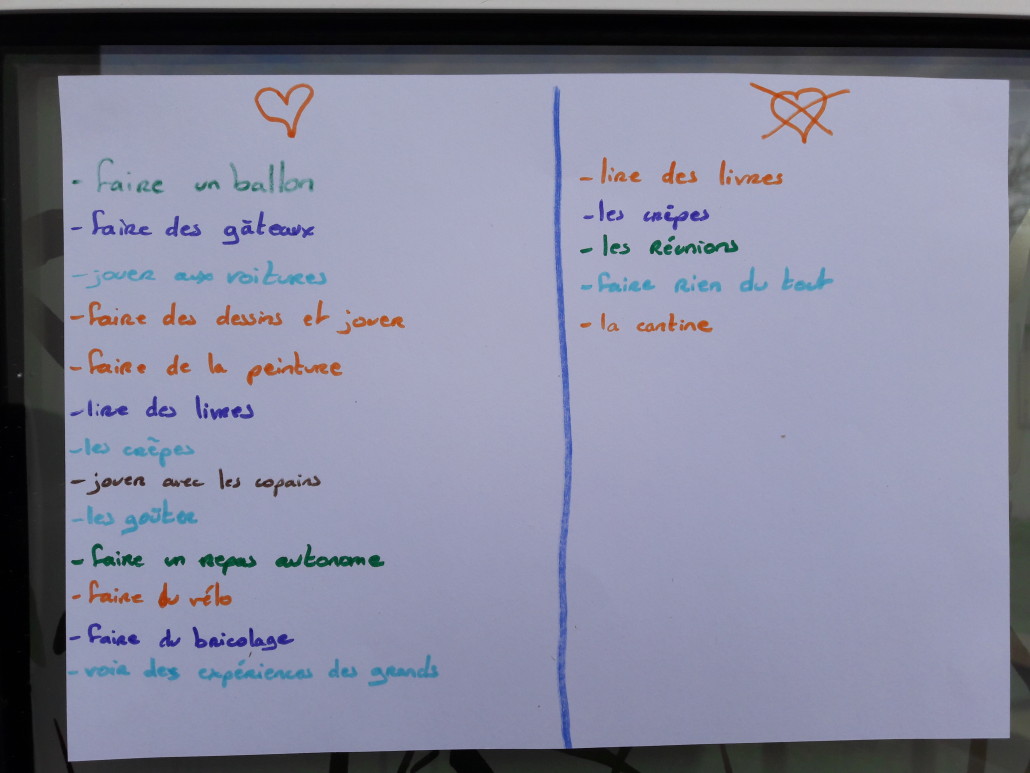 - faire un ballon
- faire des gâteaux
- jouer aux voitures
- faire des dessins et jouer
- faire de la peinture
- lire des livres
- les crêpes
- jouer avec les copains
- les goûter
- faire un repas autonome
- faire du vélo
- faire du bricolage
- voir des expériences des grands
- lire des livres
- les crêpes
- les Réunions
- faire rien du tout
- la cantine